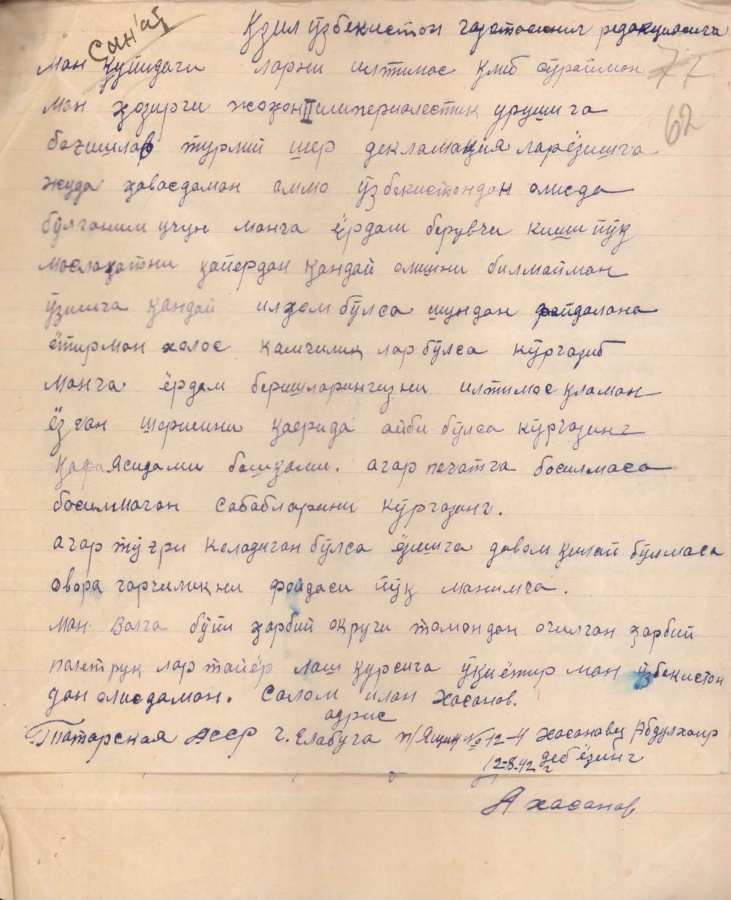 Сан'ат
Қзил ўзбекистон газетасининг редакциясига
ман қуйидаги ларни илтимос қлиб сўрайман
77
ман ҳозирги жоҳон II империалестик урушига
62
бағишлаб турлий шер декламация ларёзишга
жуда ҳавасдаман аммо ўзбекистондан олисда
бўлганим учун манга ёрдам берувчи киши йўқ
маслаҳатни қайердан қандай олишни билмайман
ўзимга қандай илҳом бўлса шундан файдалана
ётирман холос камчилик лар бўлса кўргазиб
манга ёрдам беришларингизни илтимос қламан
ёзган шеримни қаерида айби бўлса кўргазинг
қафаясидами бошқами. агар печатга босилмаса
босилмаган сабабларини кўргазинг.
агар тўғри келадиган бўлса ёзишга давом қилай бўлмаса
овора гарчиликни фойдаси йўқ манимча.
ман Волга бўйи ҳарбий округи томондан очилган ҳарбий
палетрук лар тайёр лаш курсига ўқиётир ман ўзбекистон
дан олисдаман. Салом илан Хасанов.
адрис
Татарская АССР г. Елабуга п/Ящик № 12-4 Хасановец Абдулхаир
12-8-42 г деб ёзинг
А хасанов